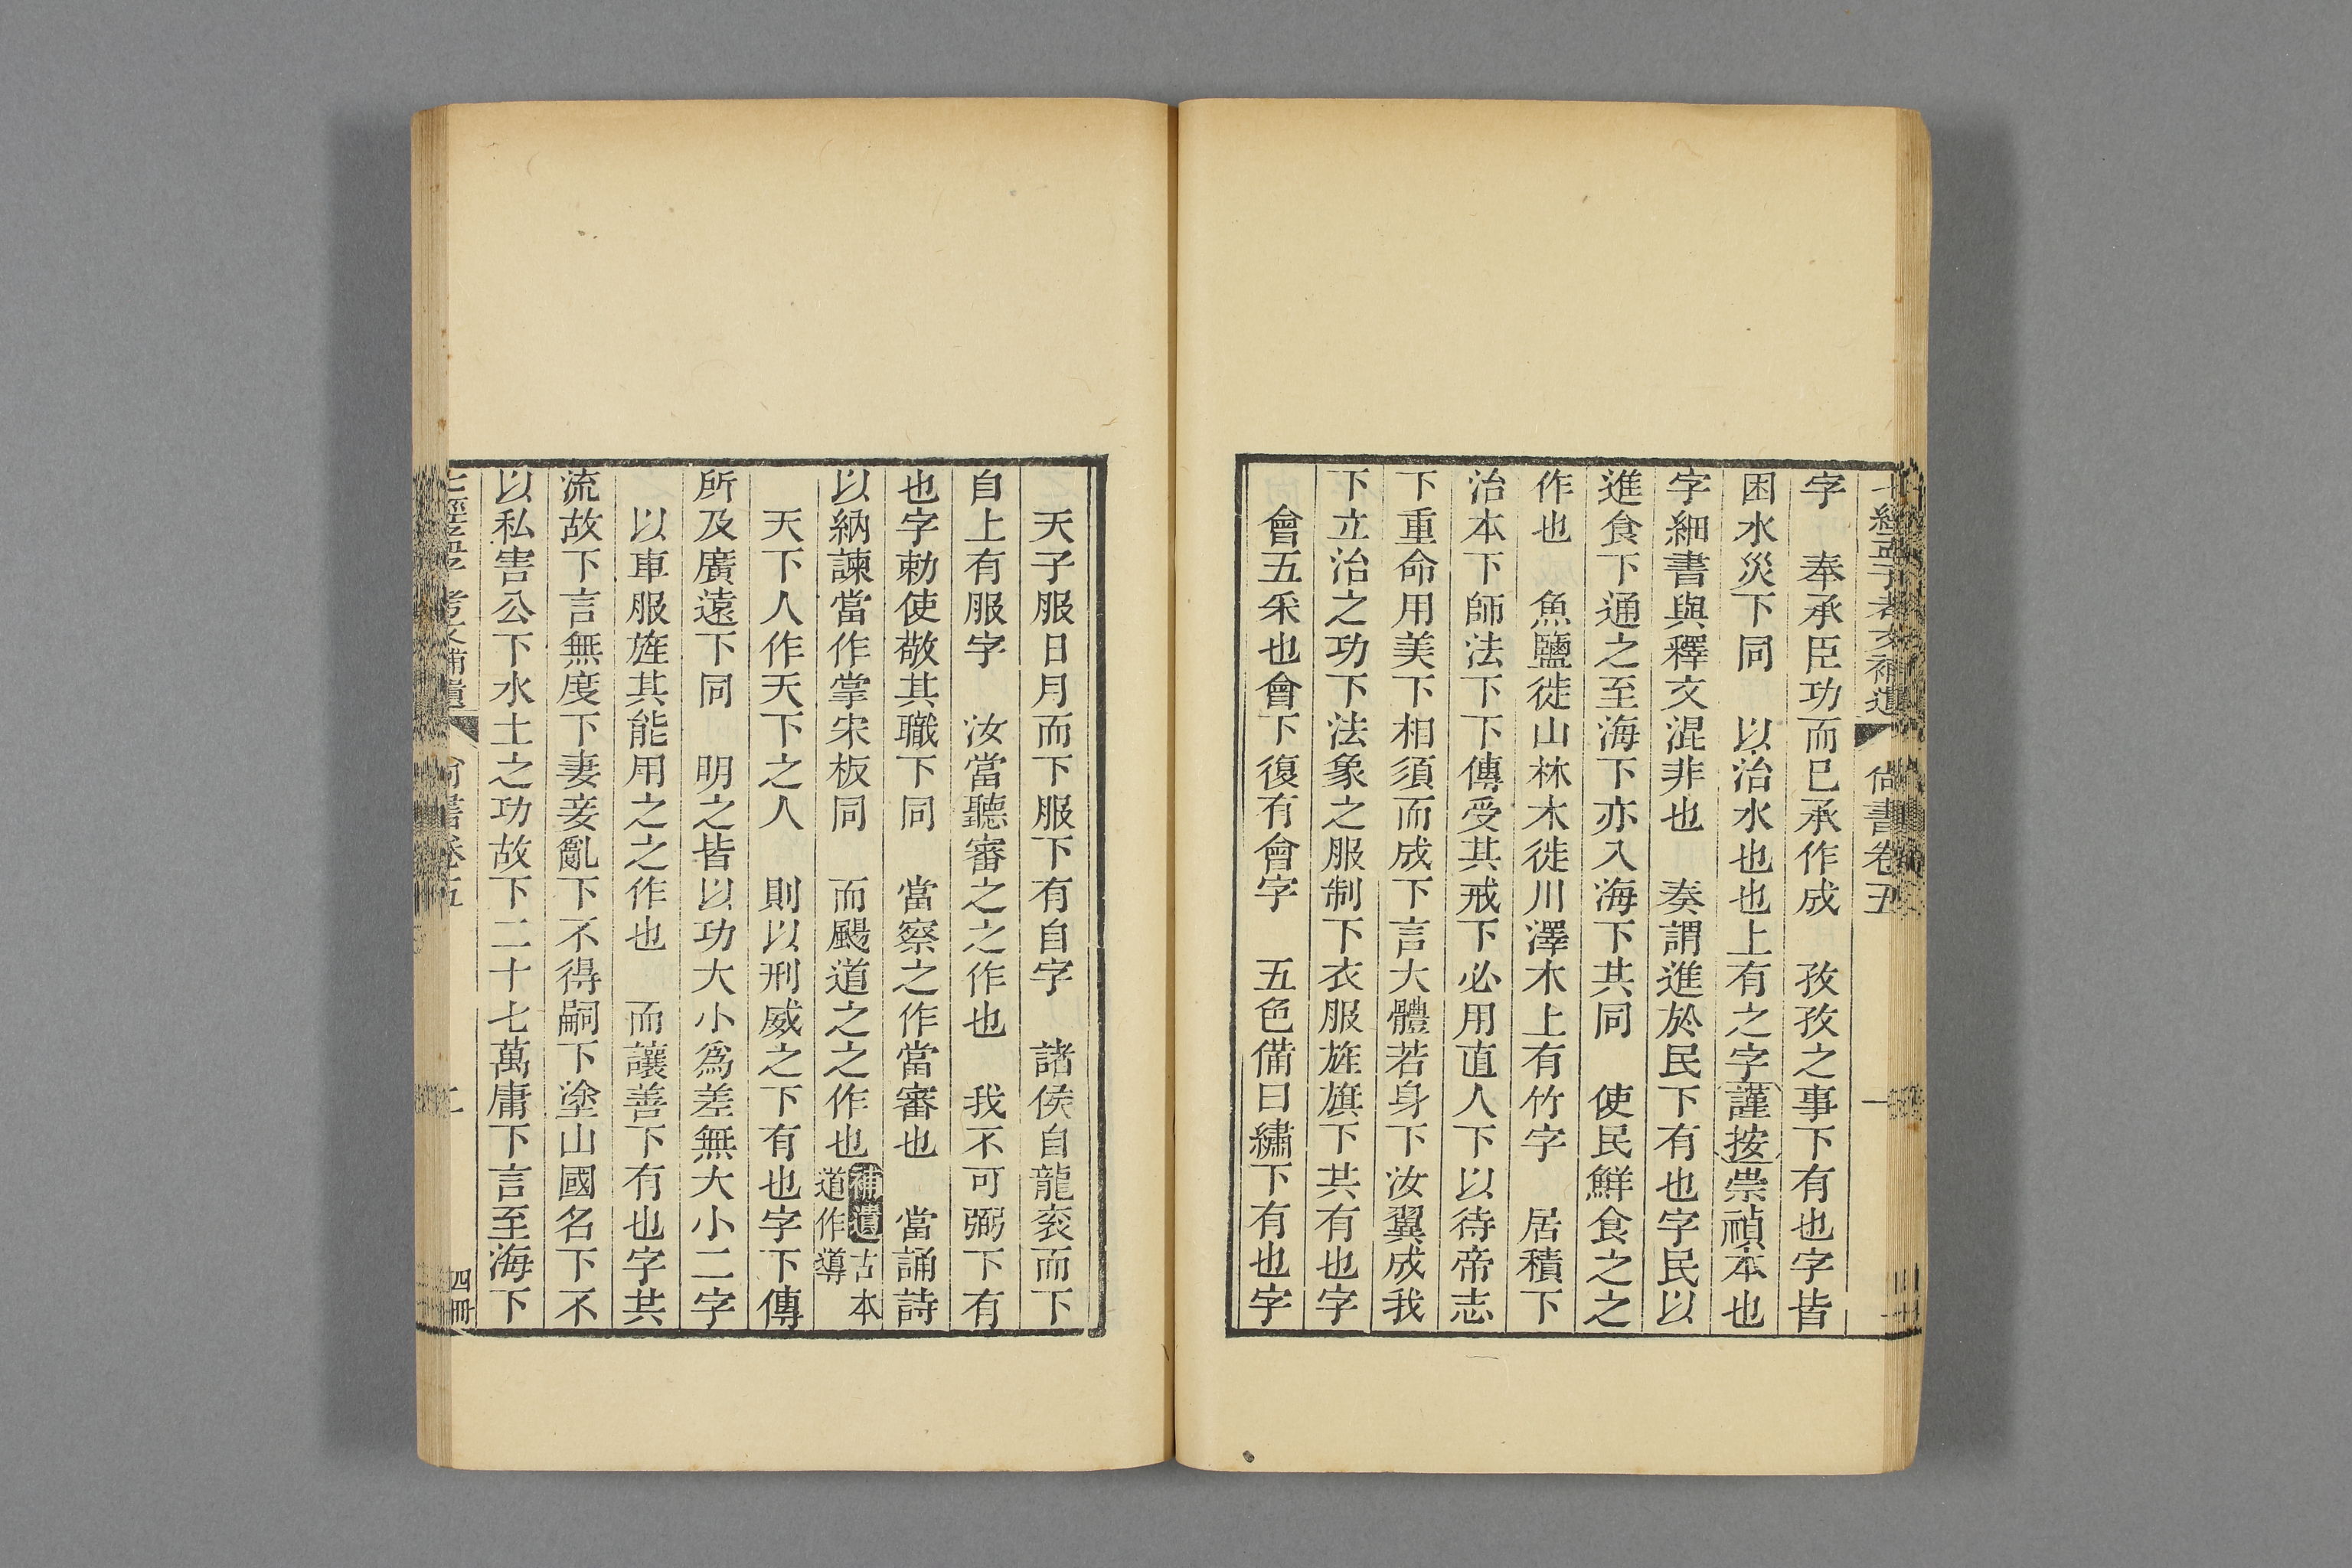 七經孟子考文補遺 尚書卷五 一
字 奉承臣功而已承作成 孜孜之事下有也字皆
困水災下同 以治水也也上有之字謹按崇禎本也
字細書與釋文混非也 奏謂進於民下有也字民以
進食下通之至海下亦入海下共同 使民鮮食之之
作也 魚鹽徙山林木徙川澤木上有竹字 居積下
治本下師法下下傳受其戒下必用直人下以待帝志
下重命用美下相須而成下言大體若身下汝翼成我
下立治之功下法象之服制下衣服旌旗下共有也字
會五采也會下復有會字 五色備曰繡下有也字
天子服日月而下服下有自字 諸侯自龍衮而下
自上有服字 汝當聽審之之作也 我不可弼下有
也字勅使敬其職下同 當察之作當審也 當誦詩
以納諫當作掌宋板同 而颺道之之作也補遺古本
道作導
天下人作天下之人 則以刑威之下有也字下傳
所及廣遠下同 明之皆以功大小爲差無大小二字
以車服旌其能用之之作也 而讓善下有也字共
流故下言無度下妻妾亂下不得嗣下塗山國名下不
以私害公下水土之功故下二十七萬庸下言至海下
七經孟子考文補遺 尚書卷五 二 四冊